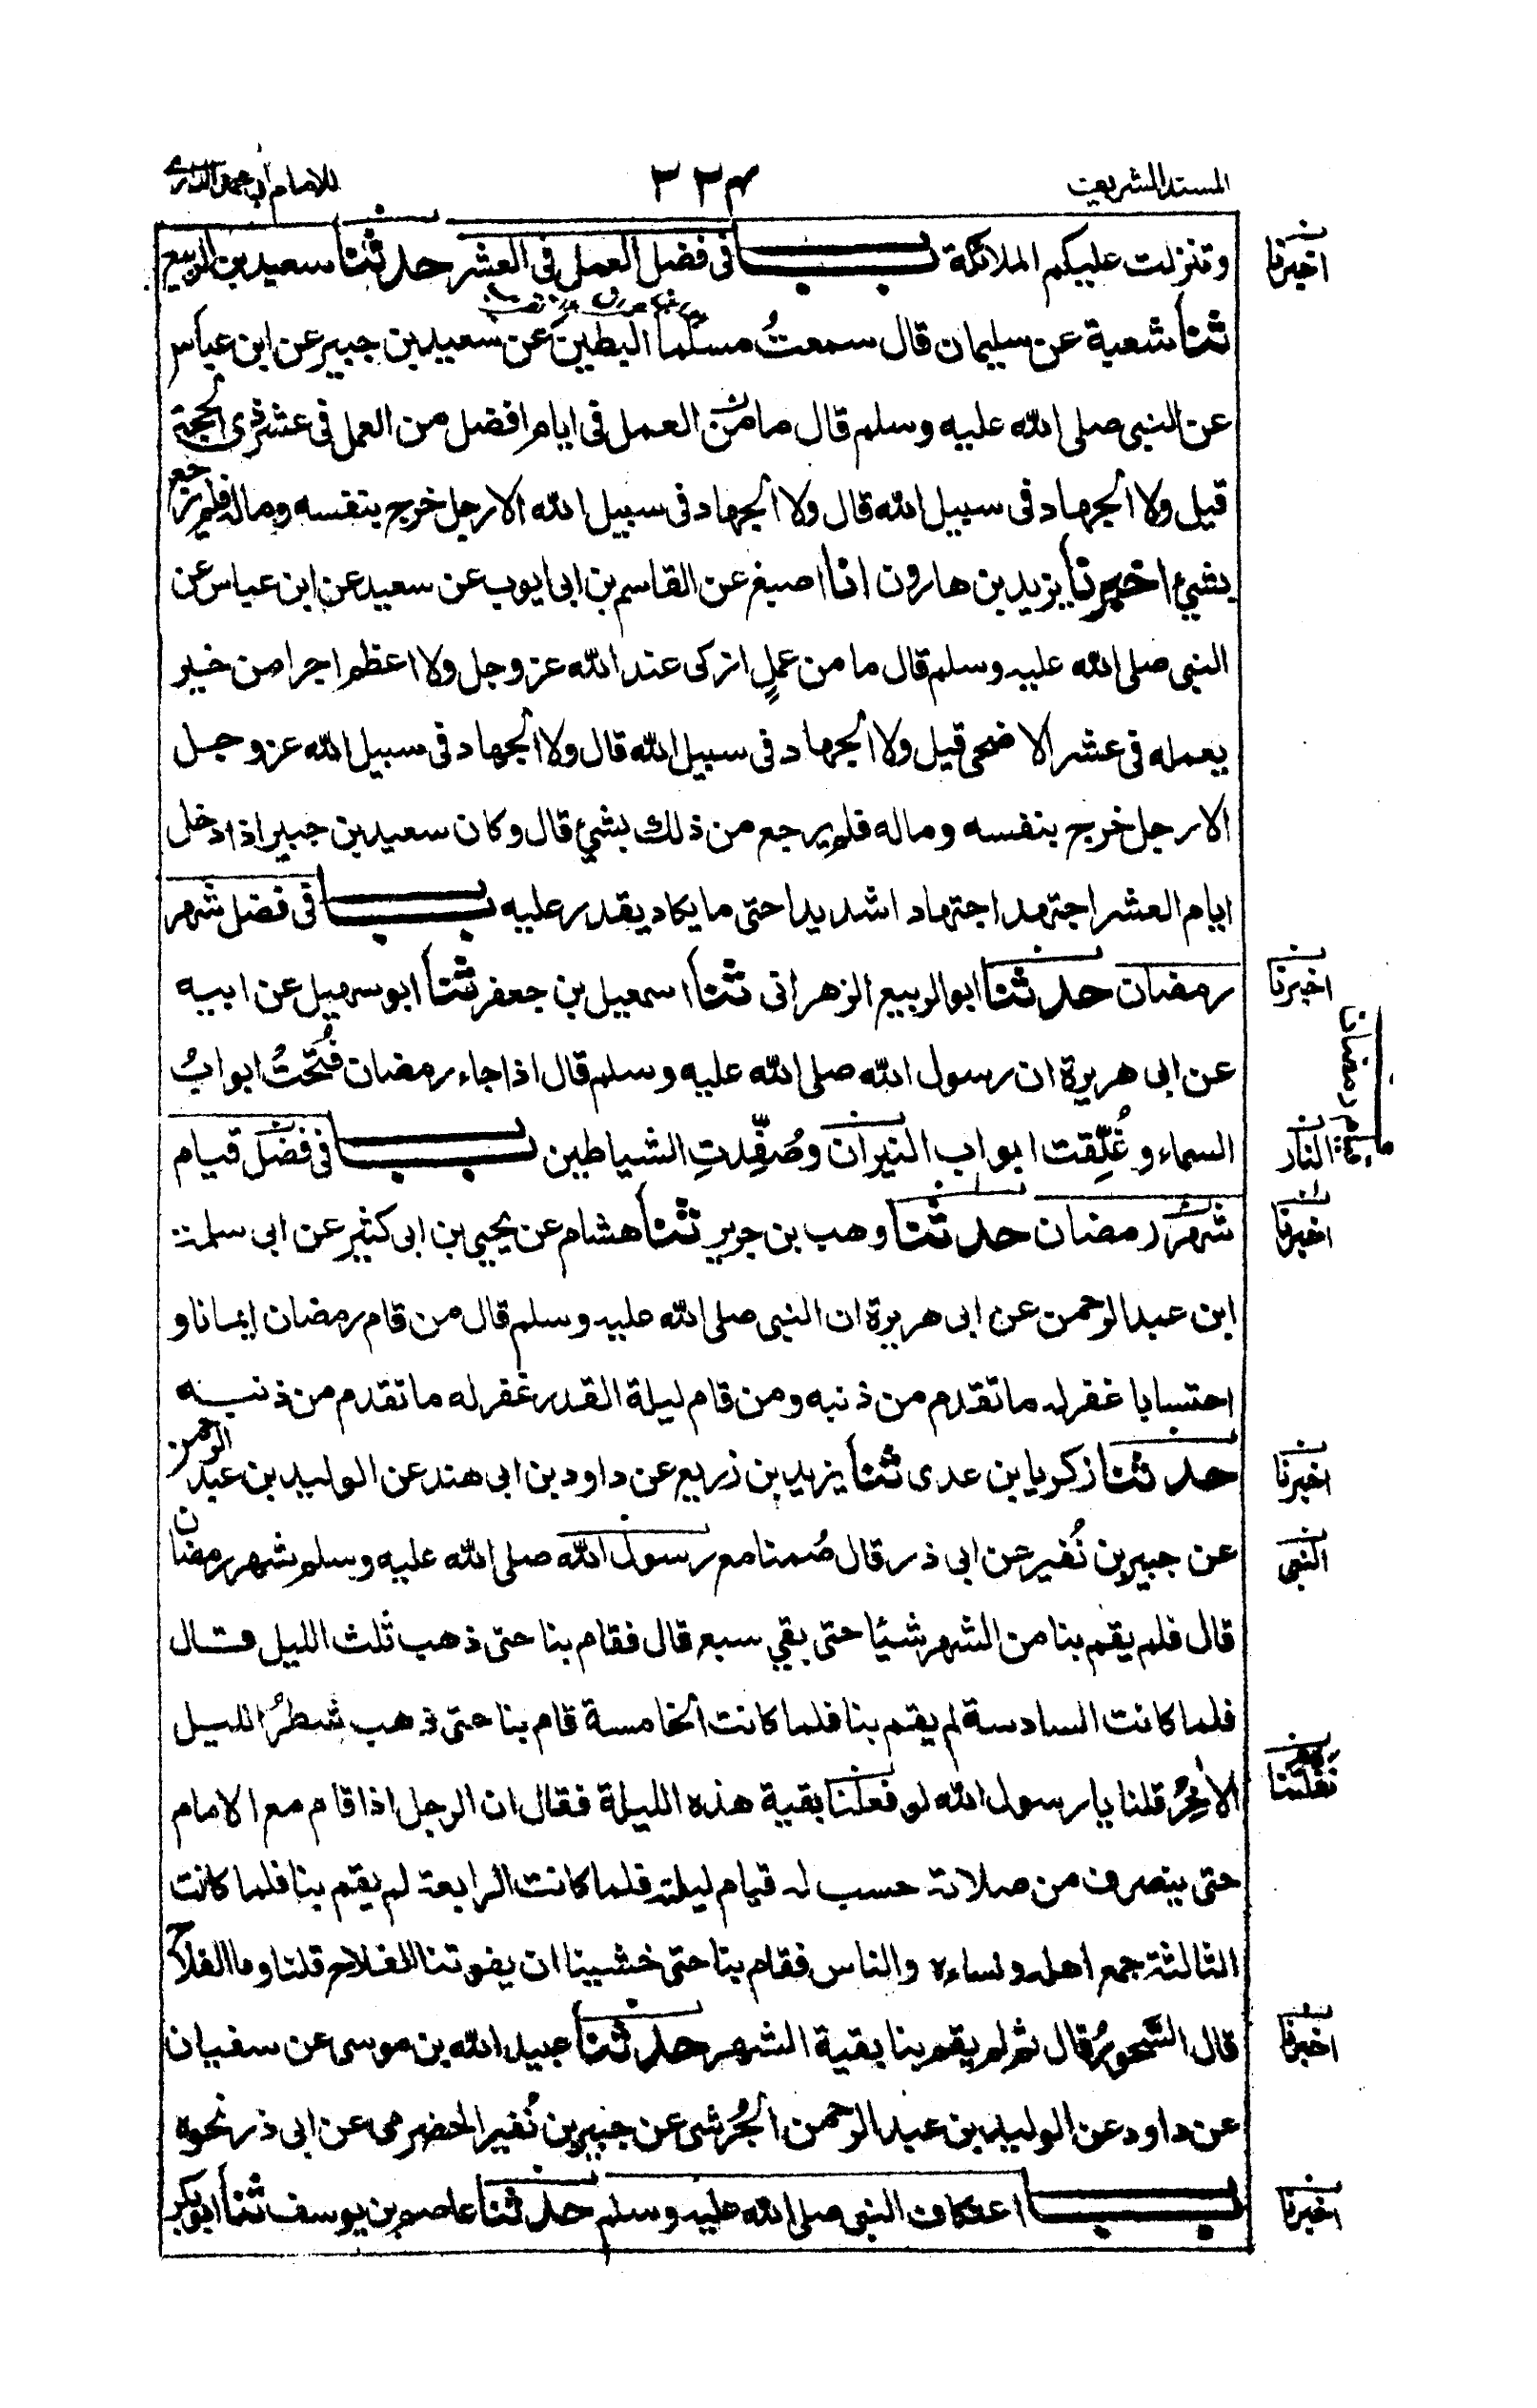 المسند الشريف ٣٣٤ للامام ابى محمد الدارمى
وتنزلت عليكم الملائكة بــاب فى فضل العمل فى العشر حدثنا سعيد بن الربيع
ثنا شعبة عن سليمان قال سمعتُ مسلما البطين عن سعيد بن جبير عن ابن عباس
عن النبى صلى الله عليه وسلم قال ما من العمل فى ايام افضل من العمل فى عشر ذى الحجة
قيل ولا الجهاد فى سبيل الله قال ولا الجهاد فى سبيل الله الا رجل خرج بنفسه وماله فلم يرجع
بشئ اخبرنا يزيد بن هارون انا اصبغ عن القاسم بن ابى ايوب عن سعيد عن ابن عباس عن
النبى صلى الله عليه وسلم قال ما من عملٍ ازكى عند الله عز وجل ولا اعظم اجرا من خير
يعمله فى عشر الاضحى قيل ولا الجهاد فى سبيل الله قال ولا الجهاد فى سبيل الله عز وجل
الا رجل خرج بنفسه وماله فلم يرجع من ذلك بشئ قال وكان سعيد بن جبير اذا دخل
ايام العشر اجتهد اجتهاد اشديدا حتى ما يكاد يقدر عليه بــاب فى فضل شهر
رمضان حدثنا ابو الربيع الزهرانى ثنا اسمعيل بن جعفر ثنا ابو سهيل عن ابيه
عن ابى هريرة ان رسول الله صلى الله عليه وسلم قال اذا جاء رمضان فُتحتُ ابوابُ
السماء و غُلِّقت ابواب النيران وصُفِّدتِ الشياطين بــاب فى فضل قيام
شهر رمضان حدثنا وهب بن جرير ثنا هشام عن يحيى بن ابى كثير عن ابى سلمة
ابن عبد الرحمن عن ابى هريرة ان النبى صلى الله عليه وسلم قال من قام رمضان ايمانا و
احتسابا غفر له ما تقدم من ذنبه ومن قام ليلة القدر غفر له ما تقدم من ذنبه
حدثنا زكريا بن عدى ثنا يزيد بن زريع عن داود بن ابى هند عن الوليد بن عبد الرحمن
عن جبير بن نُفير عن ابى ذر قال صُمنا مع رسول الله صلى الله عليه وسلم شهر رمضان
قال فلم يقم بنا من الشهر شيئا حتى بقي سبع قال فقام بنا حتى ذهب ثلث الليل قال
فلما كانت السادسة لم يقم بنا فلما كانت الخامسة قام بنا حتى ذهب شطرُ الليل
الأخِرُ قلنا يا رسول الله لو فعلنا بقية هذه الليلة فقال ان الرجل اذا قام مع الامام
حتى ينصرف من صلاته حسب له قيام ليلته فلما كانت الرابعة لم يقم بنا فلما كانت
الثالثة جمع اهله ونساءه والناس فقام بنا حتى خشينا ان يفوتنا الفلاح قلنا وما الفلاح
قال السَّحورُ قال ثم لم يقم بنا بقية الشهر حدثنا عبيد الله بن موسى عن سفيان
عن داود عن الوليد بن عبد الرحمن الجُرشى عن جبير بن نُفير الحضرمى عن ابى ذر نحوه
بــاب اعتكاف النبى صلى الله عليه وسلم حدثنا عاصم بن يوسف ثنا ابو بكر
اخبرنا
اخبرنا
قيام رمضان
النار
اخبرنا
اخبرنا
النبى
نفلتنا
اخبرنا
اخبرنا